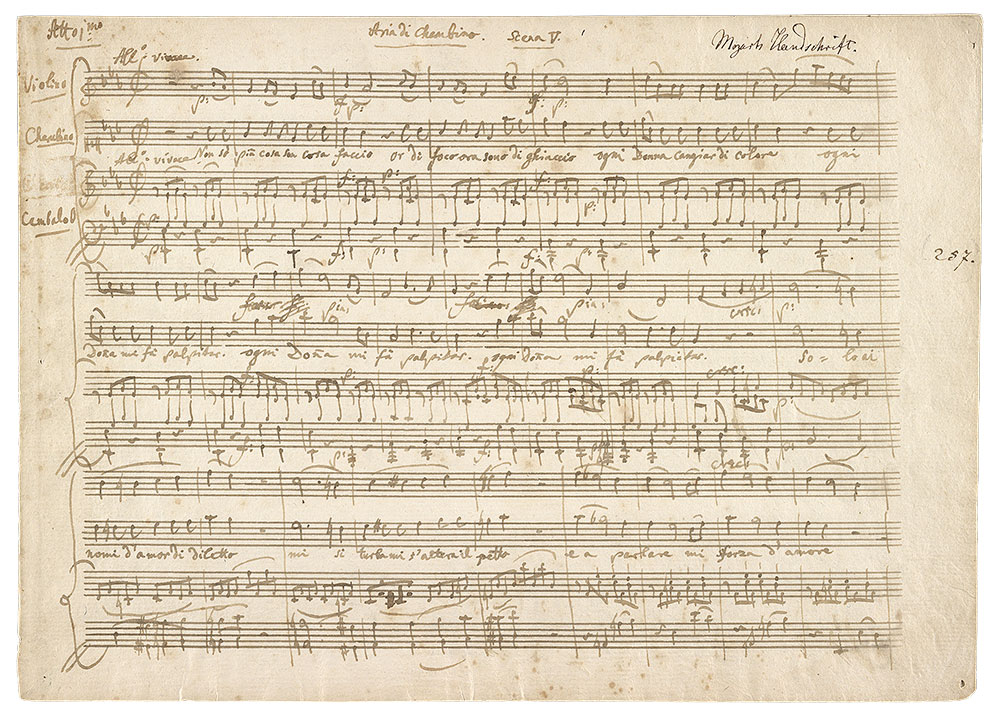 Atto 1mo Aria di Cherubino. Scena V. Mozarts Handschrift.
All.o vivace.
Violino
p: f p: f: p:
Cherubino
All.o vivace Non sò più cosa son cosa faccio or di foco ora sono di ghiaccio ogni Donna cangiar di colore ogni
f: p: f: p:
Cembalo
p: f: p: f: p:
257.
pia: pia: cresc: p:
Doña mi fà palpitar. ogni Doña mi fà palpitar. ogni doña mi fà palpitar. so = lo ai
f: p: p: cresc: p:
f: p: f: p:
cresc:
nomi d'amor di diletto mi si turba mi s'altera il petto e a parlare mi sforza d'amore